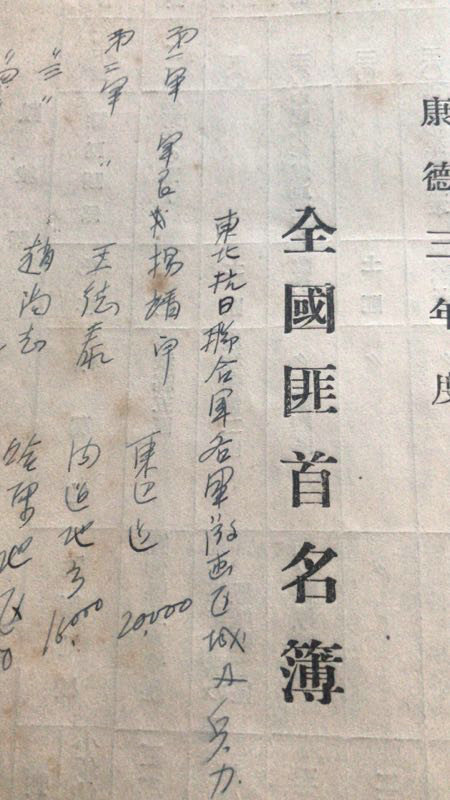 康德三年度
全國匪首名簿
東北抗日聯合軍各軍游击区域及兵力
第一軍 軍長 楊靖宇 東辺道 20,000
第二軍 〃 王德泰 間道地方 18,000
〃三〃 趙尚志 哈東地区